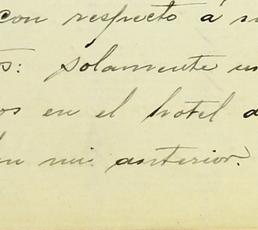 con respecto á su
s: solamente un
os en el hotel a
en mi anterior.